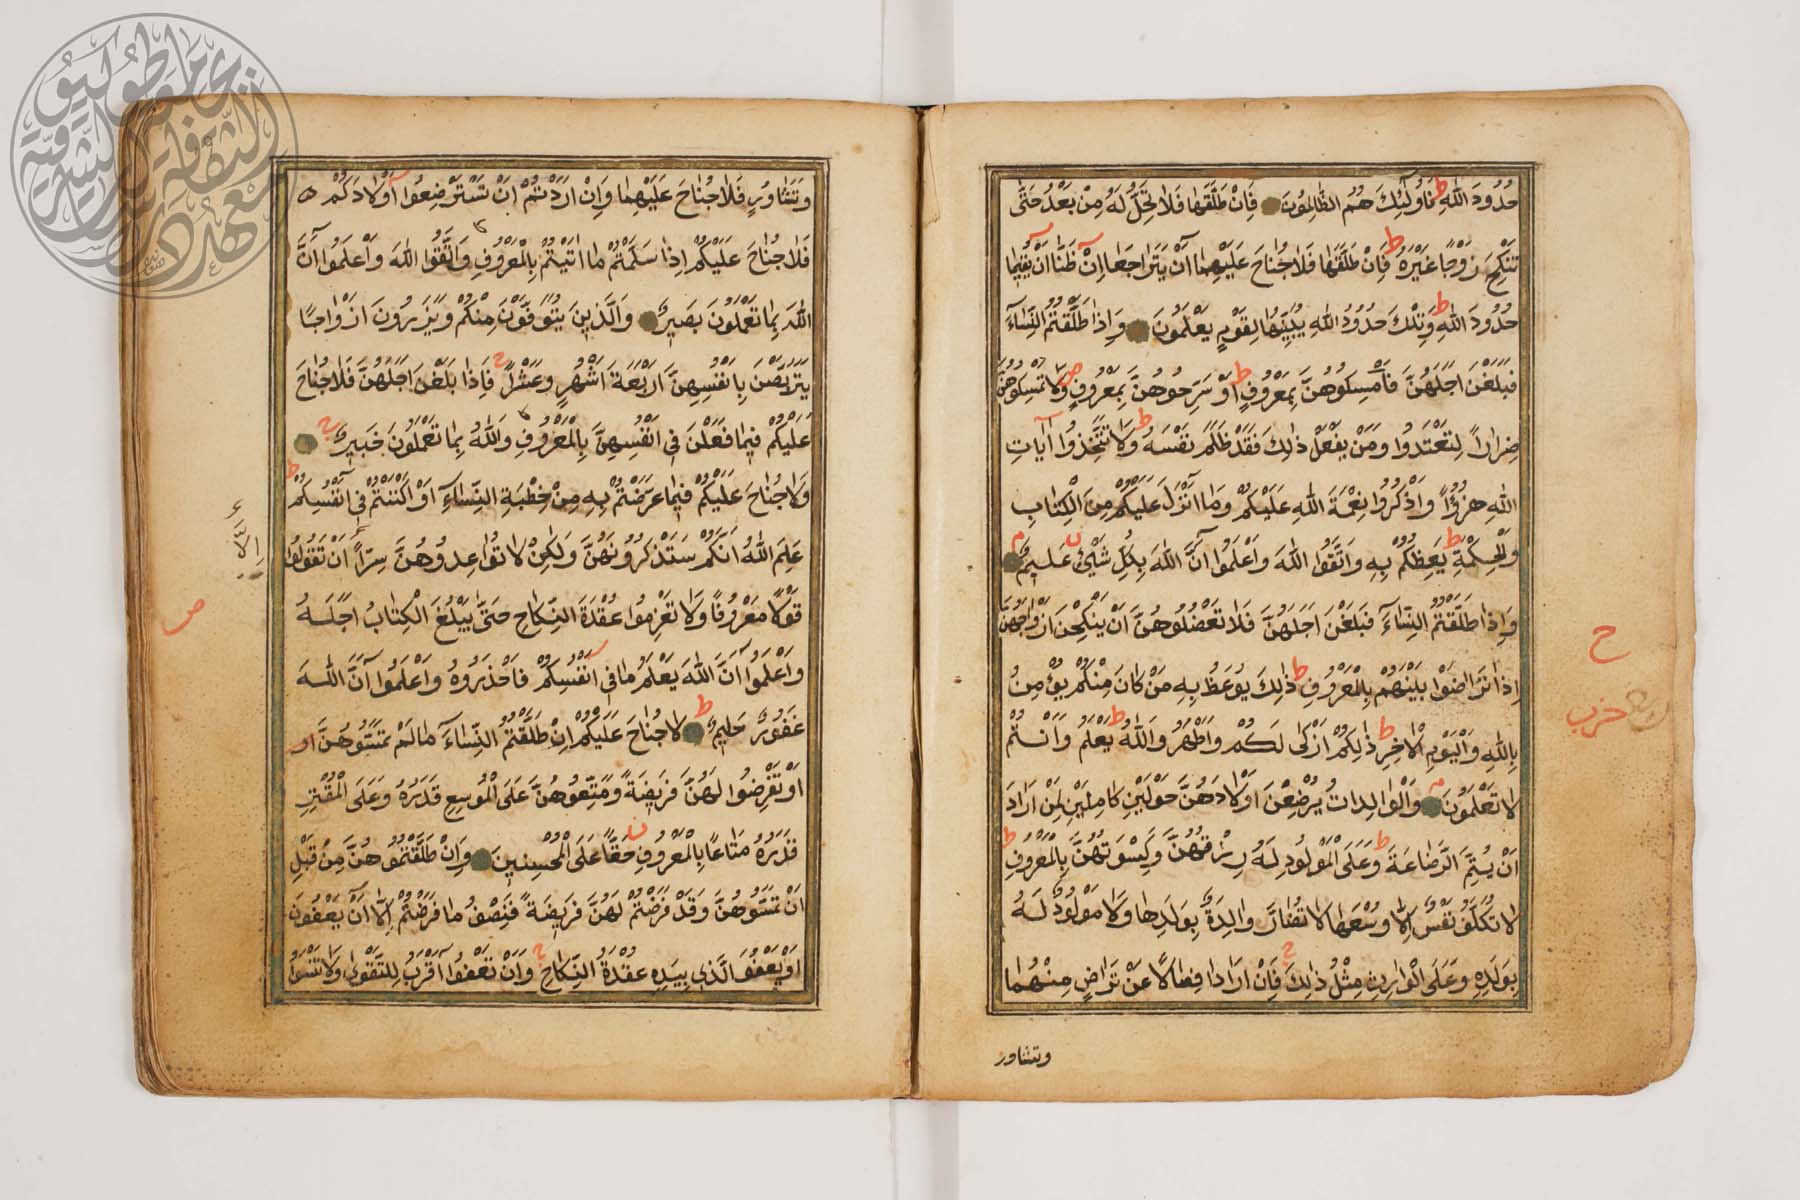 حُدُودَ اللّٰهِ فَاُولٰٓئِكَ هُمُ الظَّالِمُونَ فَاِنْ طَلَّقَهَا فَلَا تَحِلُّ لَهُ مِنْ بَعْدُ حَتّٰى
تَنْكِحَ زَوْجًا غَيْرَهُ فَاِنْ طَلَّقَهَا فَلَا جُنَاحَ عَلَيْهِمَا اَنْ يَتَرَاجَعَا اِنْ ظَنَّا اَنْ يُقِيمَا
حُدُودَ اللّٰهِ وَتِلْكَ حُدُودُ اللّٰهِ يُبَيِّنُهَا لِقَوْمٍ يَعْلَمُونَ وَاِذَا طَلَّقْتُمُ النِّسَآءَ
فَبَلَغْنَ اَجَلَهُنَّ فَاَمْسِكُوهُنَّ بِمَعْرُوفٍ اَوْ سَرِّحُوهُنَّ بِمَعْرُوفٍ وَلَا تُمْسِكُوهُنَّ
ضِرَارًا لِتَعْتَدُوا وَمَنْ يَفْعَلْ ذٰلِكَ فَقَدْ ظَلَمَ نَفْسَهُ وَلَا تَتَّخِذُوا اٰيَاتِ
اللّٰهِ هُزُؤًا وَاذْكُرُوا نِعْمَةَ اللّٰهِ عَلَيْكُمْ وَمَا اَنْزَلَ عَلَيْكُمْ مِنَ الْكِتَابِ
وَالْحِكْمَةِ يَعِظُكُمْ بِهِ وَاتَّقُوا اللّٰهَ وَاعْلَمُوا اَنَّ اللّٰهَ بِكُلِّ شَيْءٍ عَلِيمٌ
وَاِذَا طَلَّقْتُمُ النِّسَآءَ فَبَلَغْنَ اَجَلَهُنَّ فَلَا تَعْضُلُوهُنَّ اَنْ يَنْكِحْنَ اَزْوَاجَهُنَّ
اِذَا تَرَاضَوْا بَيْنَهُمْ بِالْمَعْرُوفِ ذٰلِكَ يُوعَظُ بِهِ مَنْ كَانَ مِنْكُمْ يُؤْمِنُ
بِاللّٰهِ وَالْيَوْمِ الْاٰخِرِ ذٰلِكُمْ اَزْكٰى لَكُمْ وَاَطْهَرُ وَاللّٰهُ يَعْلَمُ وَاَنْتُمْ
لَا تَعْلَمُونَ وَالْوَالِدَاتُ يُرْضِعْنَ اَوْلَادَهُنَّ حَوْلَيْنِ كَامِلَيْنِ لِمَنْ اَرَادَ
اَنْ يُتِمَّ الرَّضَاعَةَ وَعَلَى الْمَوْلُودِ لَهُ رِزْقُهُنَّ وَكِسْوَتُهُنَّ بِالْمَعْرُوفِ
لَا تُكَلَّفُ نَفْسٌ اِلَّا وُسْعَهَا لَا تُضَارَّ وَالِدَةٌ بِوَلَدِهَا وَلَا مَوْلُودٌ لَهُ
بِوَلَدِهِ وَعَلَى الْوَارِثِ مِثْلُ ذٰلِكَ فَاِنْ اَرَادَا فِصَالًا عَنْ تَرَاضٍ مِنْهُمَا
وتشاور
ح
حزب
وَتَشَاوُرٍ فَلَا جُنَاحَ عَلَيْهِمَا وَاِنْ اَرَدْتُمْ اَنْ تَسْتَرْضِعُوا اَوْلَادَكُمْ
فَلَا جُنَاحَ عَلَيْكُمْ اِذَا سَلَّمْتُمْ مَا اٰتَيْتُمْ بِالْمَعْرُوفِ وَاتَّقُوا اللّٰهَ وَاعْلَمُوا اَنَّ
اللّٰهَ بِمَا تَعْمَلُونَ بَصِيرٌ وَالَّذِينَ يُتَوَفَّوْنَ مِنْكُمْ وَيَذَرُونَ اَزْوَاجًا
يَتَرَبَّصْنَ بِاَنْفُسِهِنَّ اَرْبَعَةَ اَشْهُرٍ وَعَشْرًا فَاِذَا بَلَغْنَ اَجَلَهُنَّ فَلَا جُنَاحَ
عَلَيْكُمْ فِيمَا فَعَلْنَ فِي اَنْفُسِهِنَّ بِالْمَعْرُوفِ وَاللّٰهُ بِمَا تَعْمَلُونَ خَبِيرٌ
وَلَا جُنَاحَ عَلَيْكُمْ فِيمَا عَرَّضْتُمْ بِهِ مِنْ خِطْبَةِ النِّسَآءِ اَوْ اَكْنَنْتُمْ فِي اَنْفُسِكُمْ
عَلِمَ اللّٰهُ اَنَّكُمْ سَتَذْكُرُونَهُنَّ وَلٰكِنْ لَا تُوَاعِدُوهُنَّ سِرًّا اَنْ تَقُولُوا
قَوْلًا مَعْرُوفًا وَلَا تَعْزِمُوا عُقْدَةَ النِّكَاحِ حَتّٰى يَبْلُغَ الْكِتَابُ اَجَلَهُ
وَاعْلَمُوا اَنَّ اللّٰهَ يَعْلَمُ مَا فِي اَنْفُسِكُمْ فَاحْذَرُوهُ وَاعْلَمُوا اَنَّ اللّٰهَ
غَفُورٌ حَلِيمٌ لَا جُنَاحَ عَلَيْكُمْ اِنْ طَلَّقْتُمُ النِّسَآءَ مَا لَمْ تَمَسُّوهُنَّ او
اَوْ تَفْرِضُوا لَهُنَّ فَرِيضَةً وَمَتِّعُوهُنَّ عَلَى الْمُوسِعِ قَدَرُهُ وَعَلَى الْمُقْتِرِ
قَدَرُهُ مَتَاعًا بِالْمَعْرُوفِ حَقًّا عَلَى الْمُحْسِنِينَ وَاِنْ طَلَّقْتُمُوهُنَّ مِنْ قَبْلِ
اَنْ تَمَسُّوهُنَّ وَقَدْ فَرَضْتُمْ لَهُنَّ فَرِيضَةً فَنِصْفُ مَا فَرَضْتُمْ اِلَّا اَنْ يَعْفُونَ
اَوْ يَعْفُوَ الَّذِي بِيَدِهِ عُقْدَةُ النِّكَاحِ وَاَنْ تَعْفُوا اَقْرَبُ لِلتَّقْوٰى وَلَا تَنْسَوُا
اِلَّا
ص